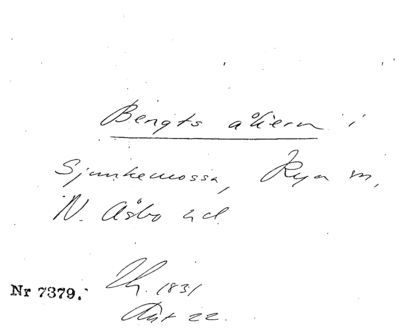 Bengts åkern i
Sjunkemossa, Rya sn,
N. Åsbo hd.
Nr 7379. Lh. 1831
Akt 22.